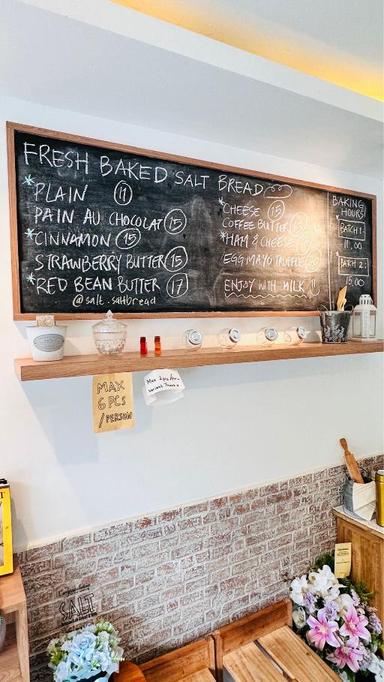 FRESH BAKED SALT BREAD
PLAIN 11
PAIN AU CHOCOLAT 15
CINNAMON 15
STRAWBERRY BUTTER 15
RED BEAN BUTTER 17
@salt.saltbread
CHEESE 15
COFFEE BUTTER
HAM & CHEESE
EGG MAYO TRUFFLE
ENJOY WITH MILK
BAKING HOURS
BATCH 1
11.00
BATCH 2
15.00
MAX
6 PCS
/PERSON
SALT